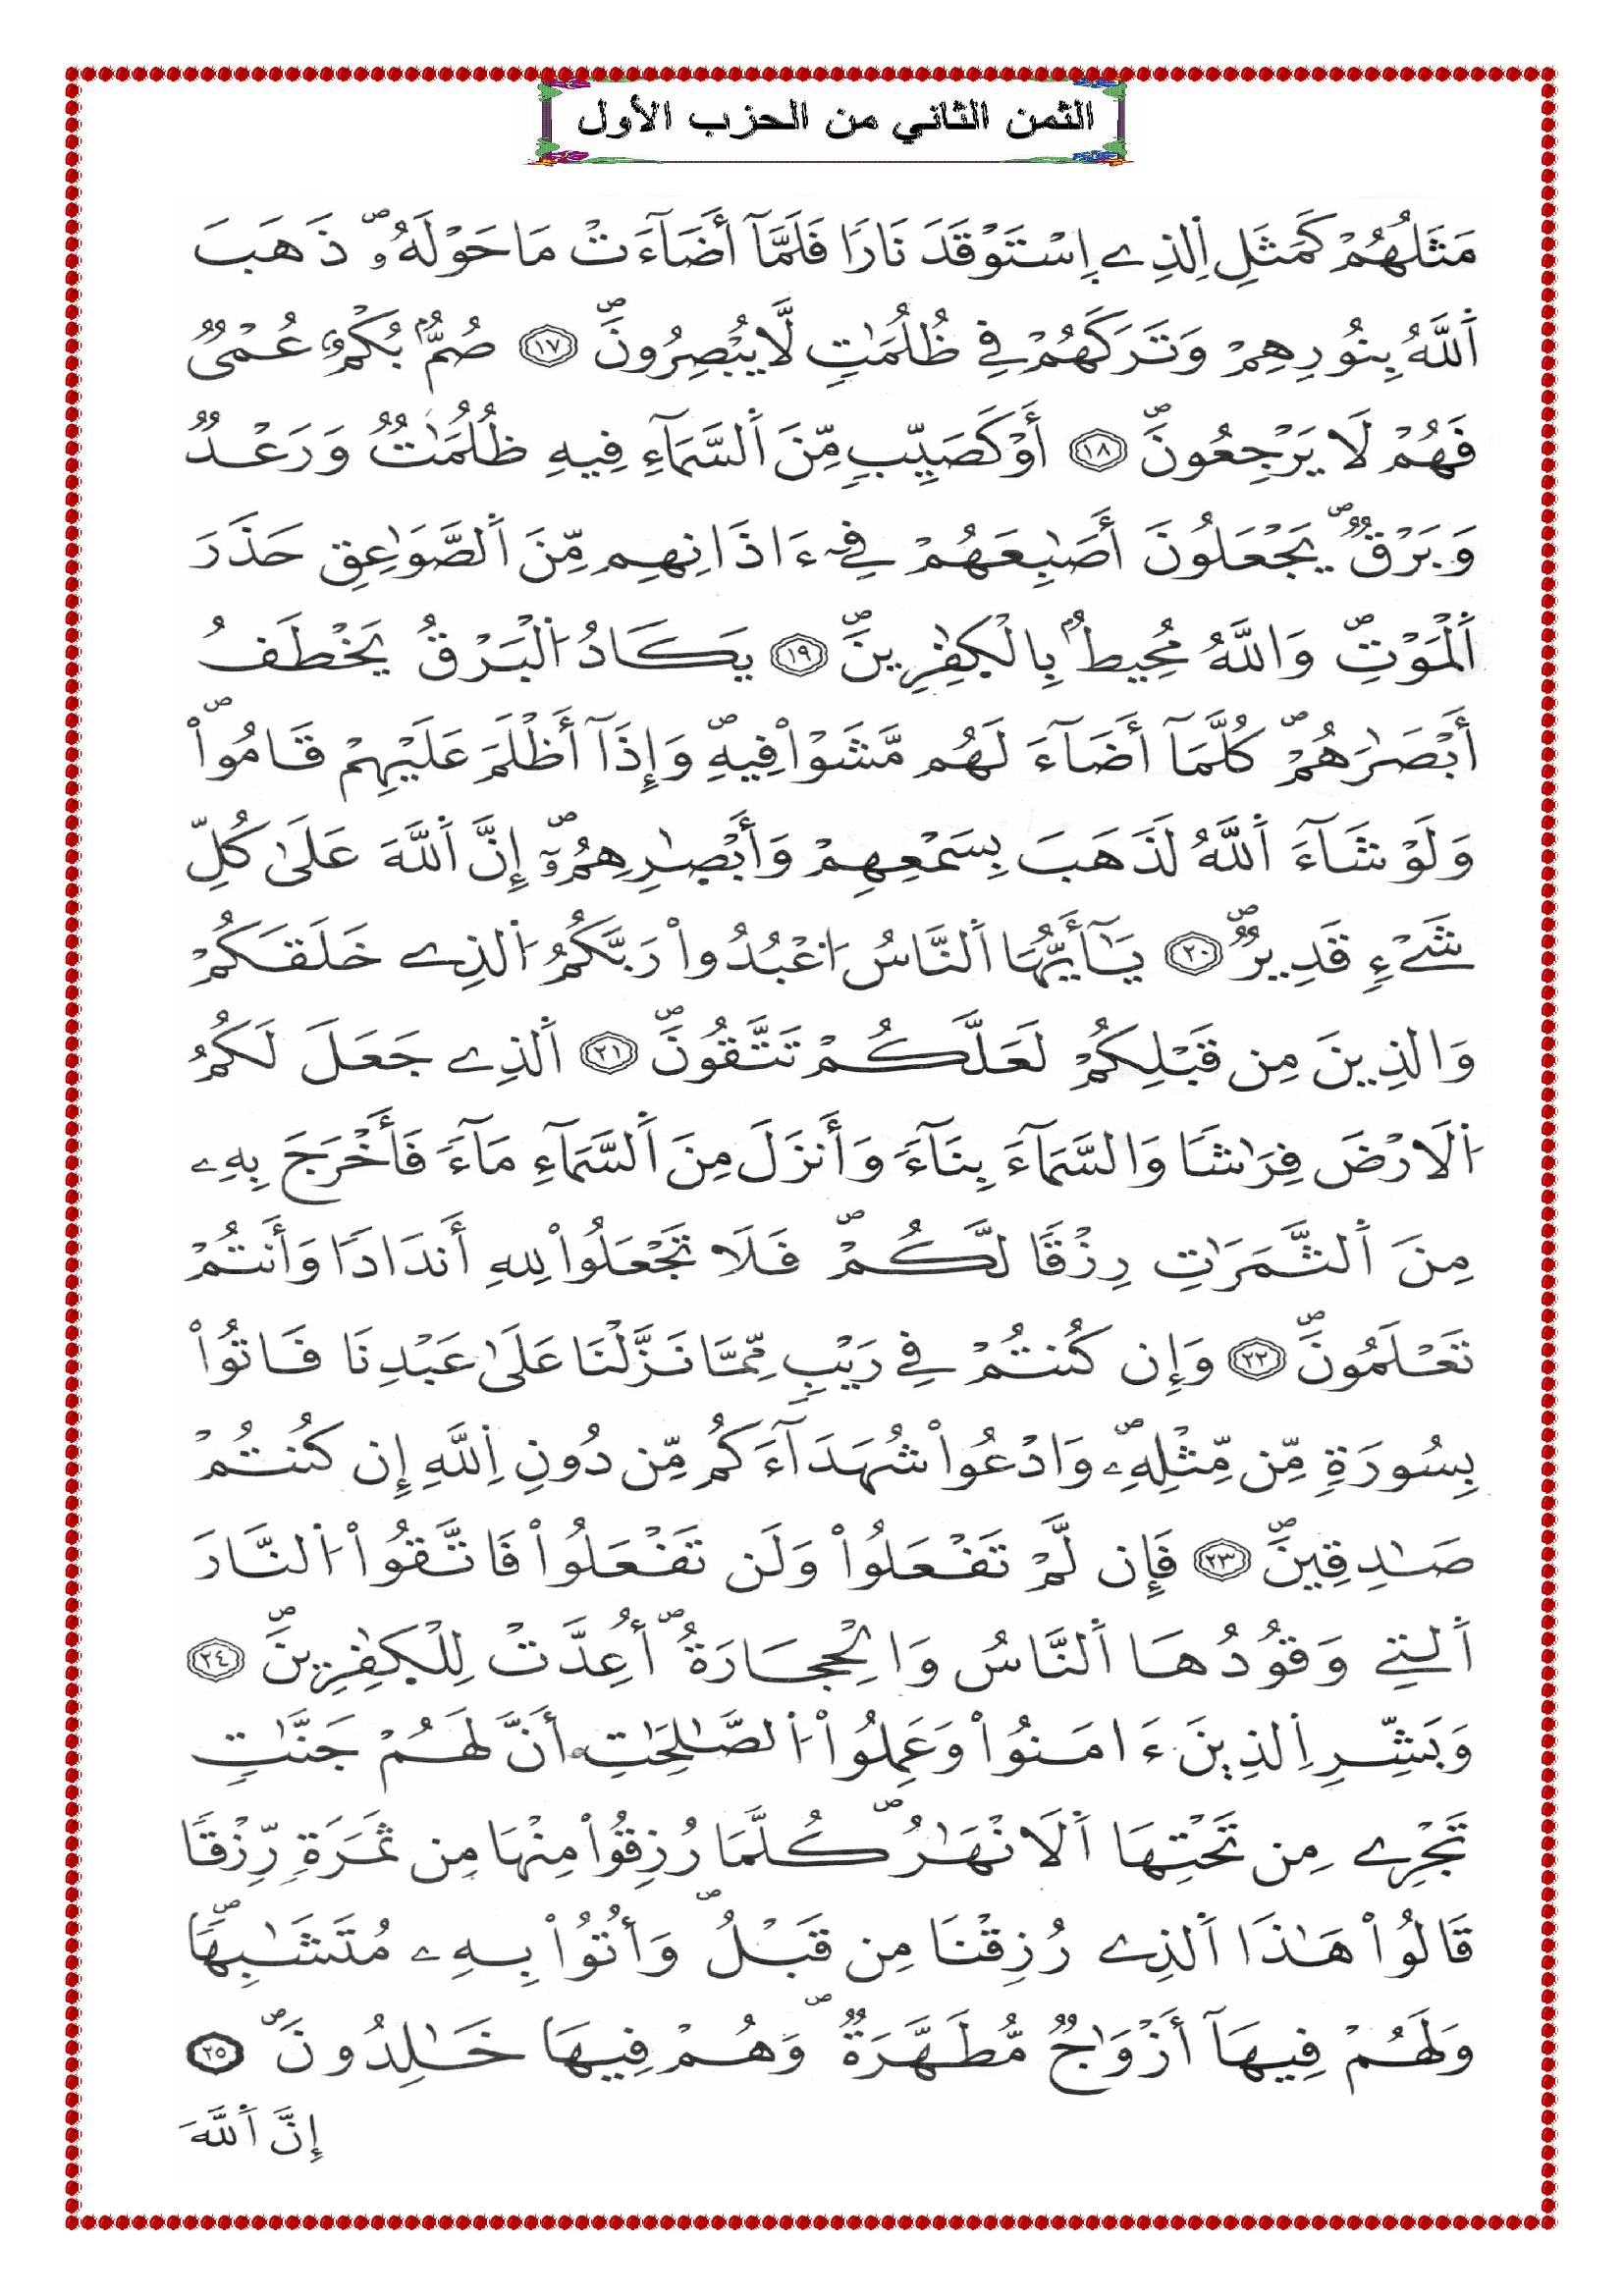 الثمن الثاني من الحزب الأول
مَثَلُهُمْ كَمَثَلِ اِ۬لذِے اِ۪سْتَوْقَدَ نَاراٗ فَلَمَّآ أَضَآءَتْ مَا حَوْلَهُۥۖ ذَهَبَ
اَ۬للَّهُ بِنُورِهِمْ وَتَرَكَهُمْ فِے ظُلُمَٰتٖ لَّا يُبْصِرُونَۖ ١٧ صُمُّۢ بُكْمٌ عُمْيٞ
فَهُمْ لَا يَرْجِعُونَۖ ١٨ أَوْ كَصَيِّبٖ مِّنَ اَ۬لسَّمَآءِ فِيهِ ظُلُمَٰتٞ وَرَعْدٞ
وَبَرْقٞۖ يَجْعَلُونَ أَصَٰبِعَهُمْ فِےٓ ءَاذَانِهِم مِّنَ اَ۬لصَّوَٰعِقِ حَذَرَ
اَ۬لْمَوْتِۖ وَاللَّهُ مُحِيطُۢ بِالْكٰ۪فِرِينَۖ ١٩ يَكَادُ اُ۬لْبَرْقُ يَخْطَفُ
أَبْصَٰرَهُمْۖ كُلَّمَآ أَضَآءَ لَهُم مَّشَوْاْ فِيهِۖ وَإِذَآ أَظْلَمَ عَلَيْهِمْ قَامُواْۖ
وَلَوْ شَآءَ اَ۬للَّهُ لَذَهَبَ بِسَمْعِهِمْ وَأَبْصٰ۪رِهِمُۥٓۖ إِنَّ اَ۬للَّهَ عَلَىٰ كُلِّ
شَےْءٖ قَدِيرٞۖ ٢٠ يَٰٓأَيُّهَا اَ۬لنَّاسُ اُ۟عْبُدُواْ رَبَّكُمُ اُ۬لذِے خَلَقَكُمْ
وَالذِينَ مِن قَبْلِكُمْ لَعَلَّكُمْ تَتَّقُونَۖ ٢١ اَ۬لذِے جَعَلَ لَكُمُ
اُ۬لَارْضَ فِرَٰشاٗ وَالسَّمَآءَ بِنَآءٗ وَأَنزَلَ مِنَ اَ۬لسَّمَآءِ مَآءٗ فَأَخْرَجَ بِهِۦ
مِنَ اَ۬لثَّمَرَٰتِ رِزْقاٗ لَّكُمْۖ فَلَا تَجْعَلُواْ لِلهِ أَندَاداٗ وَأَنتُمْ
تَعْلَمُونَۖ ٢٢ وَإِن كُنتُمْ فِے رَيْبٖ مِّمَّا نَزَّلْنَا عَلَىٰ عَبْدِنَا فَاتُواْ
بِسُورَةٖ مِّن مِّثْلِهِۦۖ وَادْعُواْ شُهَدَآءَكُم مِّن دُونِ اِ۬للَّهِ إِن كُنتُمْ
صَٰدِقِينَۖ ٢٣ فَإِن لَّمْ تَفْعَلُواْ وَلَن تَفْعَلُواْ فَاتَّقُواْ اُ۬لنَّارَ
اَ۬لتِے وَقُودُهَا اَ۬لنَّاسُ وَالْحِجَارَةُۖ أُعِدَّتْ لِلْكٰ۪فِرِينَۖ ٢٤
وَبَشِّرِ اِ۬لذِينَ ءَامَنُواْ وَعَمِلُواْ اُ۬لصَّٰلِحَٰتِ أَنَّ لَهُمْ جَنَّٰتٖ
تَجْرِے مِن تَحْتِهَا اَ۬لَانْهَٰرُۖ كُلَّمَا رُزِقُواْ مِنْهَا مِن ثَمَرَةٖ رِّزْقاٗ
قَالُواْ هَٰذَا اَ۬لذِے رُزِقْنَا مِن قَبْلُۖ وَأُتُواْ بِهِۦ مُتَشَٰبِهاٗۖ
وَلَهُمْ فِيهَآ أَزْوَٰجٞ مُّطَهَّرَةٞۖ وَهُمْ فِيهَا خَٰلِدُونَۖ ٢٥
إِنَّ اَ۬للَّهَ